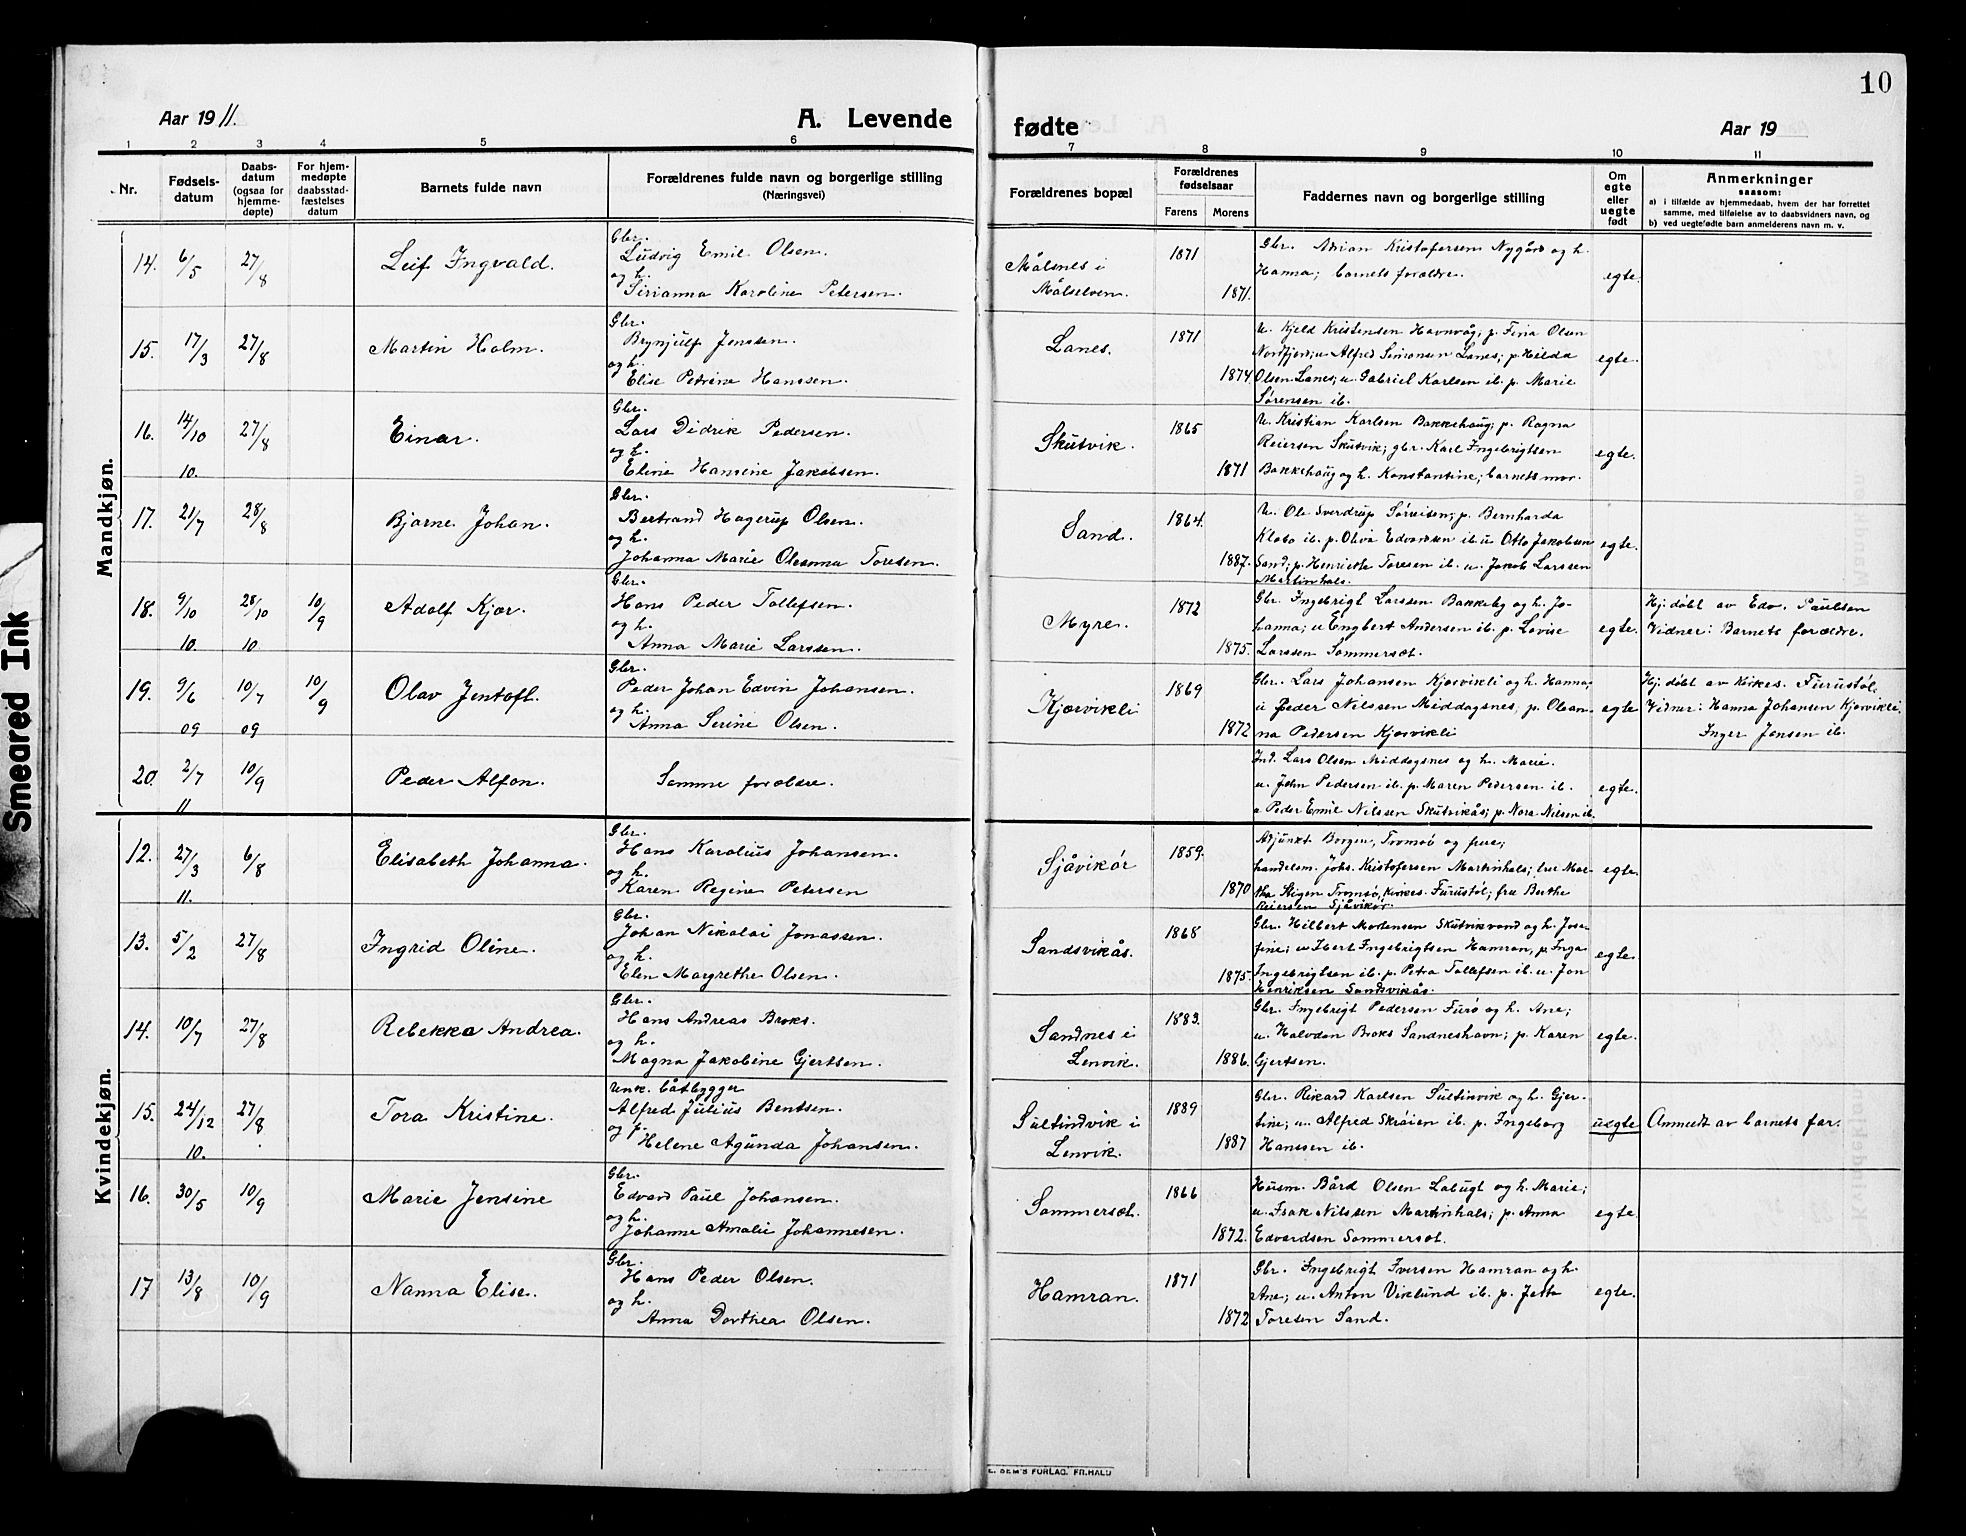 10
Aar 19 11.
A. Levende
fødte
Aar 19
1 2 3 4 5 6 7 8 9 10 11
Nr.
Fødsels-
datum
Daabs-
datum
(ogsaa for
hjemme-
døpte)
For hjem-
medøpte
daabsstad-
fæstelses
datum
Barnets fulde navn
Forældrenes fulde navn og borgerlige stilling
(Næringsvei)
Forældrenes bopæl
Forældrenes
fødselsaar
Farens Morens
Faddernes navn og borgerlige stilling
Om
egte
eller
uegte
født
Anmerkninger
saasom:
a) i tilfælde av hjemmedaab, hvem der har forrettet
samme, med tilføielse av to daabsvidners navn, og
b) ved uegtefødte barn anmelderens navn m. v.
Mandkjøn.
14. 6/5 27/8 Leif Ingvald.
Gbr.
Ludvig Emil Olsen.
og h.
Sirianna Karoline Petersen.
Målsnes i
Målselven.
1871
1871.
Gbr. Adrian Kristofersen Nygård og h.
Hanna; barnets forældre.
egte.
15. 17/3 27/8 Martin Holm.
Gbr.
Brynjulf Jenssen.
og h.
Elise Petrine Hanssen.
Lanes.
1871
1874
U. Kjeld Kristensen Havnvåg; p. Fina Olsen
Nordfjord; u. Alfred Simonsen Lanes; p. Hilda
Olsen Lanes; u. Gabriel Karlsen ib. p. Marie
Sørensen ib.
egte.
16. 14/10 27/8 Einar.
10.
Gbr.
Lars Didrik Pedersen.
og h.
Eline Hansine Jakobsen.
Skutvik.
1865
1871
U. Kristian Karlsen Bakkehaug; p. Ragna
Reiersen Skutvik; gbr. Karl Ingebrigtsen
Bakkehaug og h. Konstantine; barnets mor.
egte.
17. 21/7 28/8 Bjarne Johan.
Gbr.
Bertrand Hagerup Olsen.
og h.
Johanna Marie Oleanna Toresen.
Sand.
1864.
1887.
U. Ole Sverdrup Sørreisen; p. Bernharda
Klabo ib. p. Olva Edvardsen ib. u. Otto Jakobsen
Sand; p. Henriette Toresen ib. u. Jakob Larssen
Martinhals.
egte.
18. 9/10 28/10 10/9 Adolf Kjær.
10 10
Gbr.
Hans Peder Tollefsen.
og h.
Anna Marie Larssen.
Myre.
1872
1875.
Gbr. Ingebrigt Larssen Bakkeby og h. Jo-
hanna; u. Engbert Andersen ib. p. Lovise
Larssen Sommerset.
egte.
Hj. døbt av Edv. Paulsen
Vidner: Barnets forældre.
19. 9/6 10/7 10/9 Olav Jentoft.
09 09
Gbr.
Peder Johan Edvin Johansen.
og h.
Anna Serine Olsen.
Kjærvikli
1869
1872
Gbr. Lars Johansen Kjærvikli og h. Hanna;
u. Peder Nilssen Middagsnes; p. Olean-
na Pedersen Kjærvikli
egte
Hj. døbt av kirkes. Furustøl.
Vidner: Hanna Johansen Kjærvikli.
Inger Jensen ib.
20. 2/7 10/9 Peder Alfon.
11
Samme forældre.
Ind. Lars Olsen Middagsnes og h. Marie.
u. John Pedersen ib. p. Maren Pedersen ib.
u. Peder Emil Nilssen Skutvikås; p. Nora Nilsen ib.
egte.
Kvindekjøn.
12. 27/3 6/8 Elisabeth Johanna.
11.
Gbr.
Hans Karolius Johansen.
og h.
Karen Regine Petersen
Sjåvikør
1859.
1870
Adjunkt Borgen, Tromsø og frue;
handelsm. Johs. Kristofersen Martinhals; fru Mar-
tha Stigen Tromsø, kirkes. Furustøl; fru Berthe
Reiersen Sjåvikør.
egte.
13. 5/2 27/8 Ingrid Oline.
Gbr.
Johan Nikolai Jonassen.
og h.
Elen Margrethe Olsen.
Sandsvikås.
1868
1875.
Gbr. Hilbert Mortensen Skutvikvand og h. Jose-
fine; u. Hert Ingebrigtsen Hamran, p. Inga
Ingebrigtsen ib. p. Petra Tollefsen ib. u. Jon
Henriksen Sandsvikås.
egte.
14. 10/7 27/8 Rebekka Andrea.
Gbr.
Hans Andreas Broks.
og h.
Magna Jakobine Gjertsen.
Sandnes i
Lenvik.
1883.
1886.
Gbr. Ingebrigt Pedersen Furø og h. Ane;
u. Halvdan Broks Sandneshavn; p. Karen
Gjertsen.
egte.
15. 24/12 27/8 Tora Kristine.
10.
Unk. båtbygger
Alfred Julius Bentsen.
og p.
Helene Agunda Johansen.
Sultindvik i
Lenvik.
1889
1887
Gbr. Rikard Karlsen Sultinvik og h. Gjer-
tine; u. Alfred Skrøien ib. p. Ingeborg
Hanssen ib.
uegte
Anmeldt av barnets far.
16. 30/5 10/9 Marie Jensine
Gbr.
Edvard Paul Johansen.
og h.
Johanne Amalie Johannesen.
Sommerset.
1866
1872.
Husm. Bård Olsen Labugt og h. Marie;
u. Isak Nilssen Martinhals; p. Anna
Edvardsen Sommerset.
egte.
17 13/8 10/9 Nanna Elise.
Gbr.
Hans Peder Olsen.
og h.
Anna Dorthea Olsen.
Hamran.
1871
1872
Gbr. Ingebrigt Iversen Hamran og h.
Ane; u. Anton Viklund ib. p. Jetta
Toresen Sand.
egte.
E. SEM'S FORLAG. FR.HALD
Smeared Ink